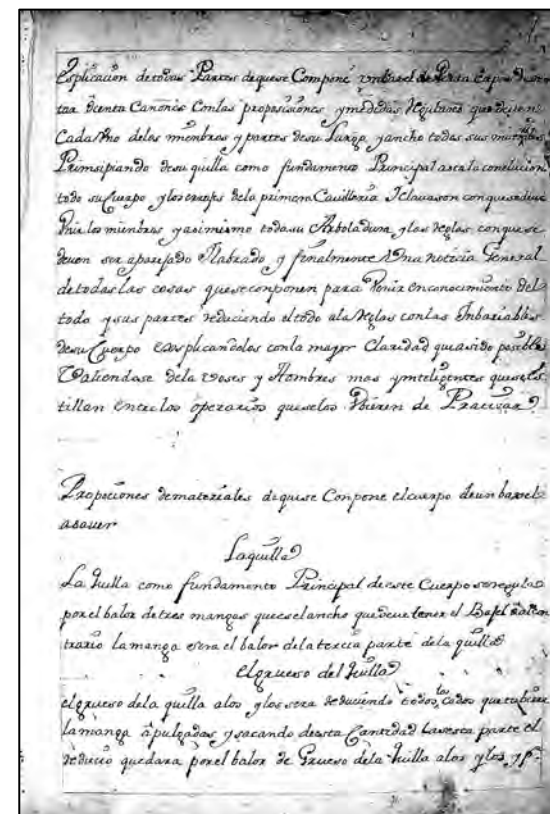 Esplicacion de todas Partes de que se Compone un baxel de Guerra Capas de mon
tar Ochenta Canones Con las proposisiones y medidas Regulares que deuen
Cada uno de los miembros y partes de su Largo, y ancho todas sus
Primsipiando de su quilla como fundamento Principal asta la conclucion
todo su Cuerpo y los de la primera Cauilleria I clauason con que se deue
Vnir los mienbros y asimismo toda su Arboladura y las Reglas con que se
deuen ser aparejado Ilabrado y finalmente Una noticia General
de todas las cosas que se conponen para Venir en conocimiento del
todo y sus partes reduciendo el todo a la Reglas con las Inbariables
de su Cuerpo Esplicandolos con la mayor Claridad que a sido posible
Valiendase de la Voses y Nombres mas ynteligentes que se Es
tillan entre los operarios que se los Vbieren de Practicar
Propociones de materiales de que se Compone el cuerpo de un baxel
asauer
La quilla
La Quilla como fundamento Principal de este Cuerpo se regula
por el balor de tres mangas que es el ancho que deue tener el Bajel Al con
trario la manga sera el balor de la tercia parte de la quilla
el grueso del Quilla
el grueso de la quilla alos y los sera Reduciendo todos los Codos que tubiere
la manga a pulgadas y sacando de esta Cantidad la sesta parte el
Reducio quedara por el balor de Grueso de la Quilla alos y los, y